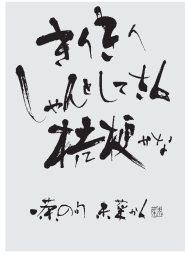 きりきり
しゃんとしてさく
桔梗かな
一茶の句